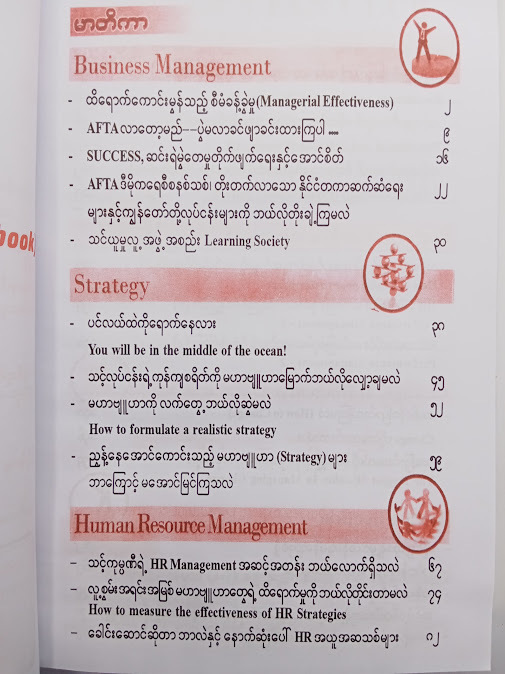 မာတိကာ
Business Management
- ထိရောက်ကောင်းမွန်သည့် စီမံခန့်ခွဲမှု(Managerial Effectiveness) ၂
- AFTA လာတော့မည်---ပွဲမလာခင်ဖျာခင်းထားကြပါ .... ၉
- SUCCESS, ဆင်းရဲမွဲတေမှုတိုက်ဖျက်ရေးနှင့်အောင်စိတ် ၁၆
- AFTA ဒီမိုကရေစီစနစ်သစ်၊ တိုးတက်လာသော နိုင်ငံတကာဆက်ဆံရေး ၂၂
များနှင့်ကျွန်တော်တို့လုပ်ငန်းများကို ဘယ်လိုတိုးချဲ့ကြမလဲ
- သင်ယူမှုလူ့ အဖွဲ့ အစည်း Learning Society ၃၀
book
Strategy
- ပင်လယ်ထဲကိုရောက်နေလား ၃၈
You will be in the middle of the ocean!
- သင့်လုပ်ငန်းရဲ့ကုန်ကျစရိတ်ကို မဟာဗျူဟာမြောက်ဘယ်လိုလျှော့ချမလဲ ၄၅
- မဟာဗျူဟာကို လက်တွေ့ဘယ်လိုဆွဲမလဲ ၅၂
How to formulate a realistic strategy
- ညွှန့်နေအောင်ကောင်းသည့် မဟာဗျူဟာ (Strategy) များ ၅၉
ဘာကြောင့် မအောင်မြင်ကြသလဲ
Human Resource Management
- သင့်ကုမ္ပဏီရဲ့ HR Management အဆင့်အတန်း ဘယ်လောက်ရှိသလဲ ၆၇
- လူ့စွမ်းအရင်းအမြစ် မဟာဗျူဟာတွေရဲ့ ထိရောက်မှုကိုဘယ်လိုတိုင်းတာမလဲ ၇၄
How to measure the effectiveness of HR Strategies
- ခေါင်းဆောင်ဆိုတာ ဘာလဲနှင့် နောက်ဆုံးပေါ် HR အယူအဆသစ်များ ၈၂